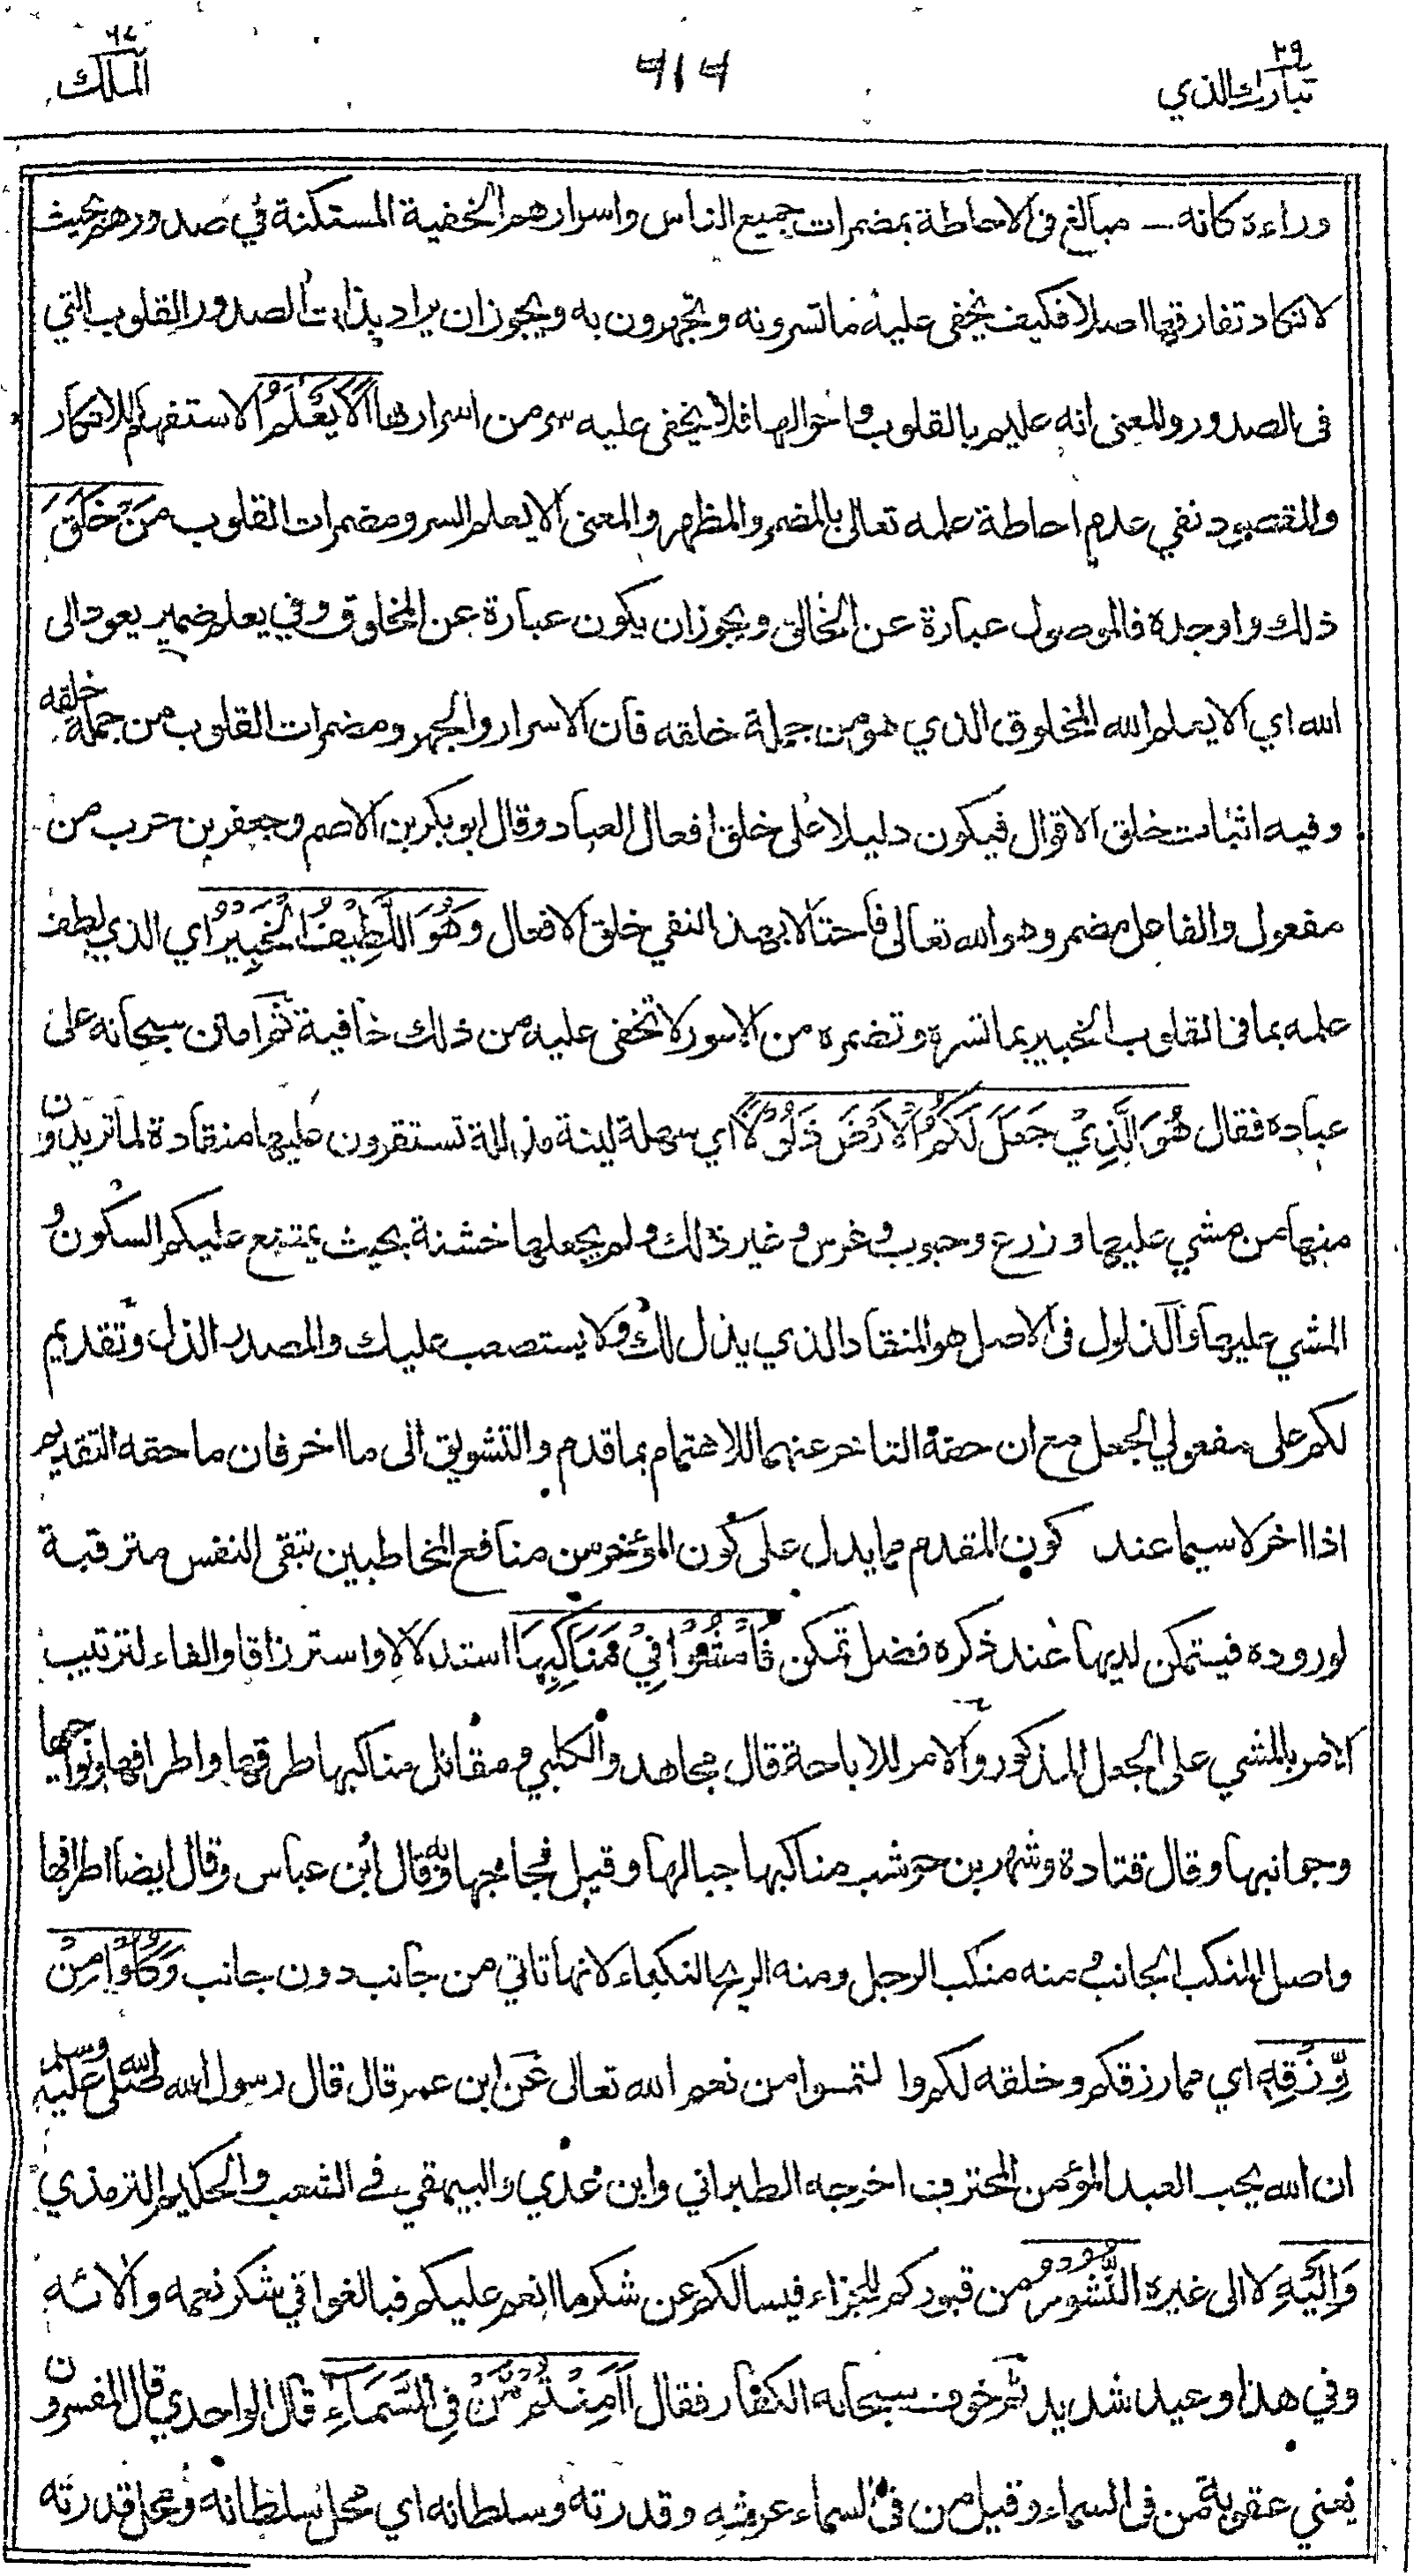 ٢٩
تبارك الذي
٦١٦
٦٧
الملك
وراءه كانه مبالغ فى الاحاطة بمضمرات جميع الناس واسرارهم الخفية المستكنة في صدورهم بحيث
لا تكاد تفارقها اصلا فكيف يخفى عليه ما تسرونه وتجهرون به ويجوز ان يراد بذات الصدور القلوب التي
فى الصدور والمعنى انه عليم بالقلوب واحوالها فلا يخفى عليه سر من اسرارها اَلَا يَعْلَمُ الاستفهام للانكار
والمقصود نفي عدم احاطة علمه تعالى بالمضمر والمظهر والمعنى الا يعلم السر ومضمرات القلوب مَنْ خَلَقَ
ذلك واوجده فالموصول عبارة عن الخالق ويجوز ان يكون عبارة عن المخلوق وفي يعلم ضمير يعود الى
الله اي الا يعلم الله المخلوق الذي هو من جملة خلقه فان الاسرار والجهر ومضمرات القلوب من جملة خلقه
وفيه اثبات خلق الاقوال فيكون دليلا على خلق افعال العباد وقال ابو بكر بن الاصم وجعفر بن حرب من
مفعول والفاعل مضمر وهو الله تعالى فاحتالا بهذا لنفي خلق الافعال وَهُوَ اللَّطِيْفُ الْخَبِيْرُ اي الذي لطف
علمه بما فى القلوب الخبير بما تسره وتضمره من الامور لا تخفى عليه من ذلك خافية ثم امتن سبحانه على
عباده فقال هُوَ الَّذِيْ جَعَلَ لَكُمُ الْاَرْضَ ذَلُوْلًا اي سهلة لينة مذللة تستقرون عليها منقادة لما تريدون
منها من مشي عليها وزرع وحبوب وغرس وغير ذلك ولم يجعلها خشنة بحيث يمتنع عليكم السكون و
المشي عليها والذلول فى الاصل هو المنقاد الذي يذل لك ولا يستصعب عليك والمصدر الذل وتقديم
لكم على مفعولي الجعل مع ان حقه التاخر عنهما للاهتمام بما قدم والتشويق الى ما اخر فان ما حقه التقديم
اذا اخر لا سيما عند كون المقدم مما يدل على كون المؤخر من منافع المخاطبين تبقى النفس مترقبة
لوروده فيتمكن لديها عند ذكره فضل تمكن فَامْشُوْا فِيْ مَنَاكِبِهَا استدلالا واسترزاقا والفاء لترتيب
الامر بالمشي على الجعل المذكور والامر للاباحة قال مجاهد والكلبي ومقاتل مناكبها طرقها واطرافها ونواحيها
وجوانبها وقال قتادة وشهر بن حوشب مناكبها جبالها وقيل فجاجها وبه قال ابن عباس وقال ايضا اطرافها
واصل المنكب الجانب ومنه منكب الرجل ومنه الريح النكباء لانها تاتي من جانب دون جانب وَكُلُوْا مِنْ
رِّزْقِهٖ اي مما رزقكم وخلقه لكم والتمسوا من نعم الله تعالى عن ابن عمر قال قال رسول الله صلى الله عليه وسلم
ان الله يحب العبد المؤمن المحترف اخرجه الطبراني وابن عدي والبيهقي في الشعب والحكيم الترمذي
وَاِلَيْهِ لا الى غيره النُّشُوْرُ من قبوركم للجزاء فيسالكم عن شكر ما انعم عليكم فبالغوا في شكر نعمه وآلائه
وفي هذا وعيد شديد ثم خوف سبحانه الكفار فقال ءَاَمِنْتُمْ مَّنْ فِى السَّمَآءِ قال الواحدي قال المفسرون
يعني عقوبة من فى السماء وقيل من فى السماء عرشه وقدرته وسلطانه اي محل سلطانه ومحل قدرته